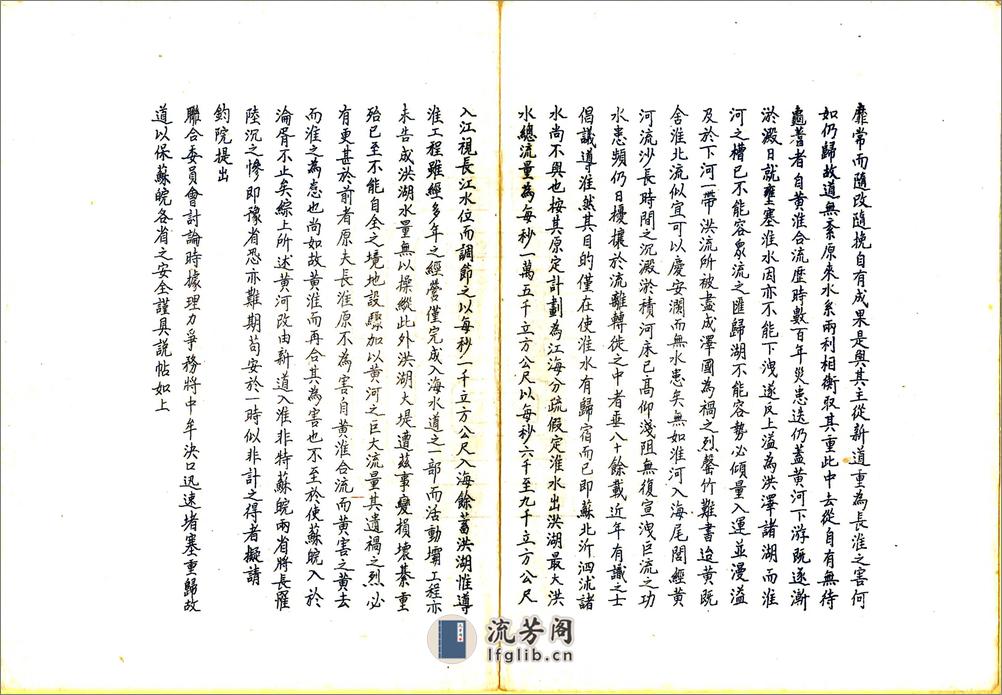 靡常而隨改隨挽自有成果是與其主從新道重為長淮之害何
如仍歸故道無紊原來水系兩利相衡取其重此中去從自有無待
龜蓍者自黃淮合流歷時數百年災患迭仍蓋黃河下游既遂漸
淤澱日就壅塞淮水因亦不能下洩遂反上溢為洪澤諸湖而淮
河之槽已不能容眾流之匯歸湖不能容勢必傾量入運並漫溢
及於下河一帶洪流所被盡成澤國為禍之烈罄竹難書迨黃既
舍淮北流似宜可以慶安瀾而無水患矣無如淮河入海尾閭經黃
河流沙長時間之沉澱淤積河床已高仰淺阻無復宣洩巨流之功
水患頻仍日擾攘於流離轉徙之中者垂八十餘載近年有識之士
倡議導淮然其目的僅在使淮水有歸宿而已即蘇北沂泗沭諸
水尚不與也按其原定計劃為江海分疏假定淮水出洪湖最大洪
水總流量為每秒一萬五千立方公尺以每秒六千至九千立方公尺
入江視長江水位而調節之以每秒一千立方公尺入海餘蓄洪湖惟導
淮工程雖經多年之經營僅完成入海水道之一部而活動壩工程亦
未告成洪湖水量無以操縱此外洪湖大堤遭茲事變損壞綦重
殆已至不能自全之境地設驟加以黃河之巨大流量其遺禍之烈必
有更甚於前者原夫長淮原不為害自黃淮合流而黃害之黃去
而淮之為患也尚如故黃淮而再合其為害也不至於使蘇皖入於
淪胥不止矣綜上所述黃河改由新道入淮非特蘇皖兩省將長罹
陸沉之慘即豫省恐亦難期苟安於一時似非計之得者擬請
鈞院提出
聯合委員會討論時據理力爭務將中牟決口迅速堵塞重歸故
道以保蘇皖各省之安全謹具說帖如上
流芳阁
lfglib.cn